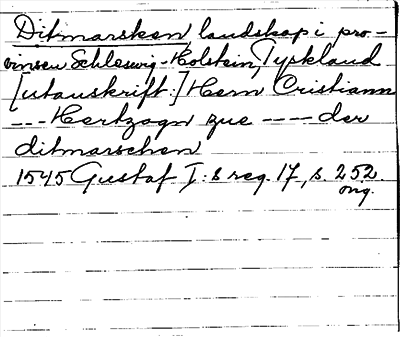 Ditmarsken landskap i pro-
vinsen Schleswig-Holstein, Tyskland
[utanskrift:] Hern Cristiann
--- Hertzogn zue ---- der
ditmarschen
1545 Gustaf I:s reg. 17, s. 252.
orig.